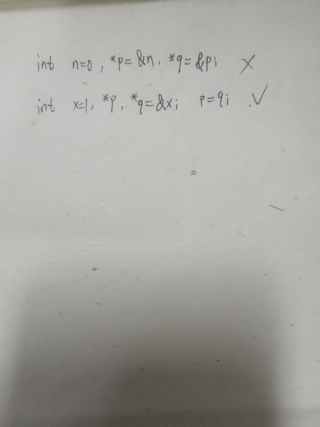 int n=0, *p=&n, *q=&p; ×
int x=1, *p, *q=&x; p=q; ✓